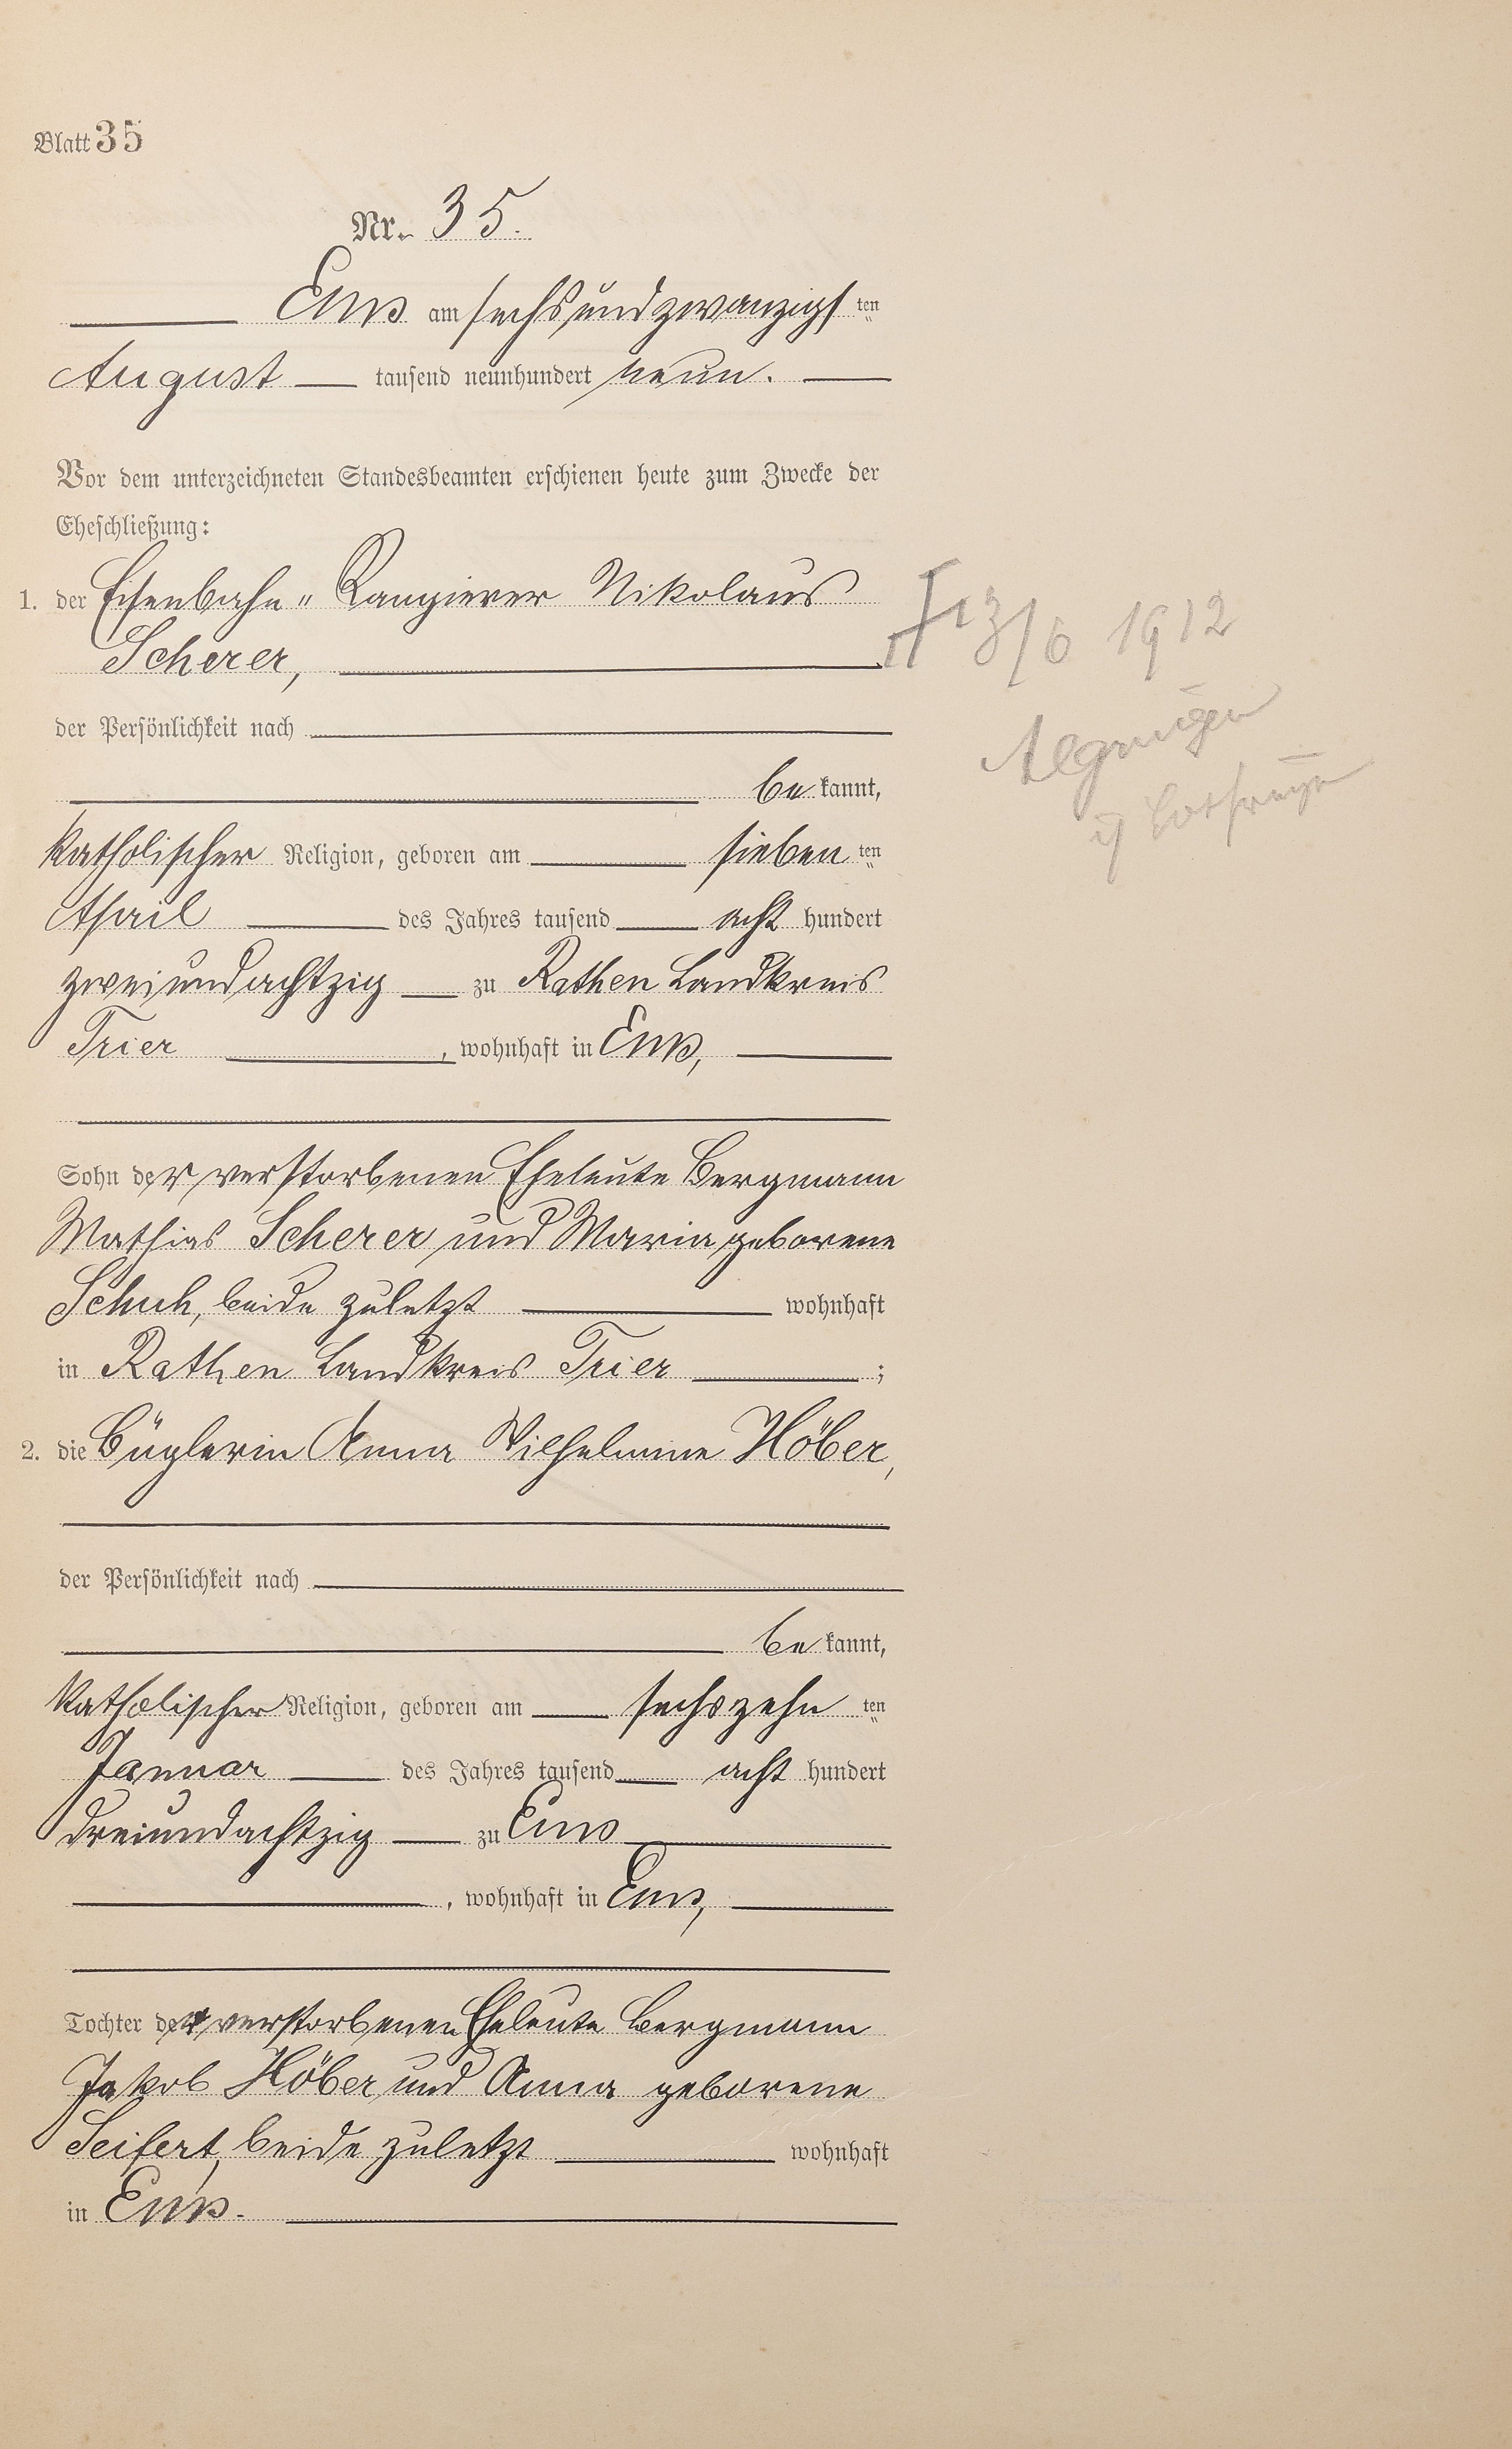 Blatt 35
Nr. 35.
Ems am sechsundzwanzigsten
August tausend neunhundert neun.
Vor dem unterzeichneten Standesbeamten erschienen heute zum Zwecke der
Eheschließung:
1. der Eisenbahn-Rangierer Nikolaus
Scherer,
13/6 1912
der Persönlichkeit nach
Algringen
i/ Lothringen
be kannt,
katholischer Religion, geboren am sieben ten
April des Jahres tausend acht hundert
zweiundachtzig zu Rathen Landkreis
Trier, wohnhaft in Ems,
Sohn der verstorbenen Eheleute Bergmann
Mathias Scherer und Maria geborene
Schuh, beide zuletzt wohnhaft
in Rathen Landkreis Trier;
2. die Büglerin Anna Wilhelmine Höber,
der Persönlichkeit nach
be kannt,
katholischer Religion, geboren am sechszehn ten
Januar des Jahres tausend acht hundert
dreiundachtzig zu Ems
, wohnhaft in Ems,
Tochter der verstorbenen Eheleute Bergmann
Jakob Höber und Anna geborene
Seifert, beide zuletzt wohnhaft
in Ems.